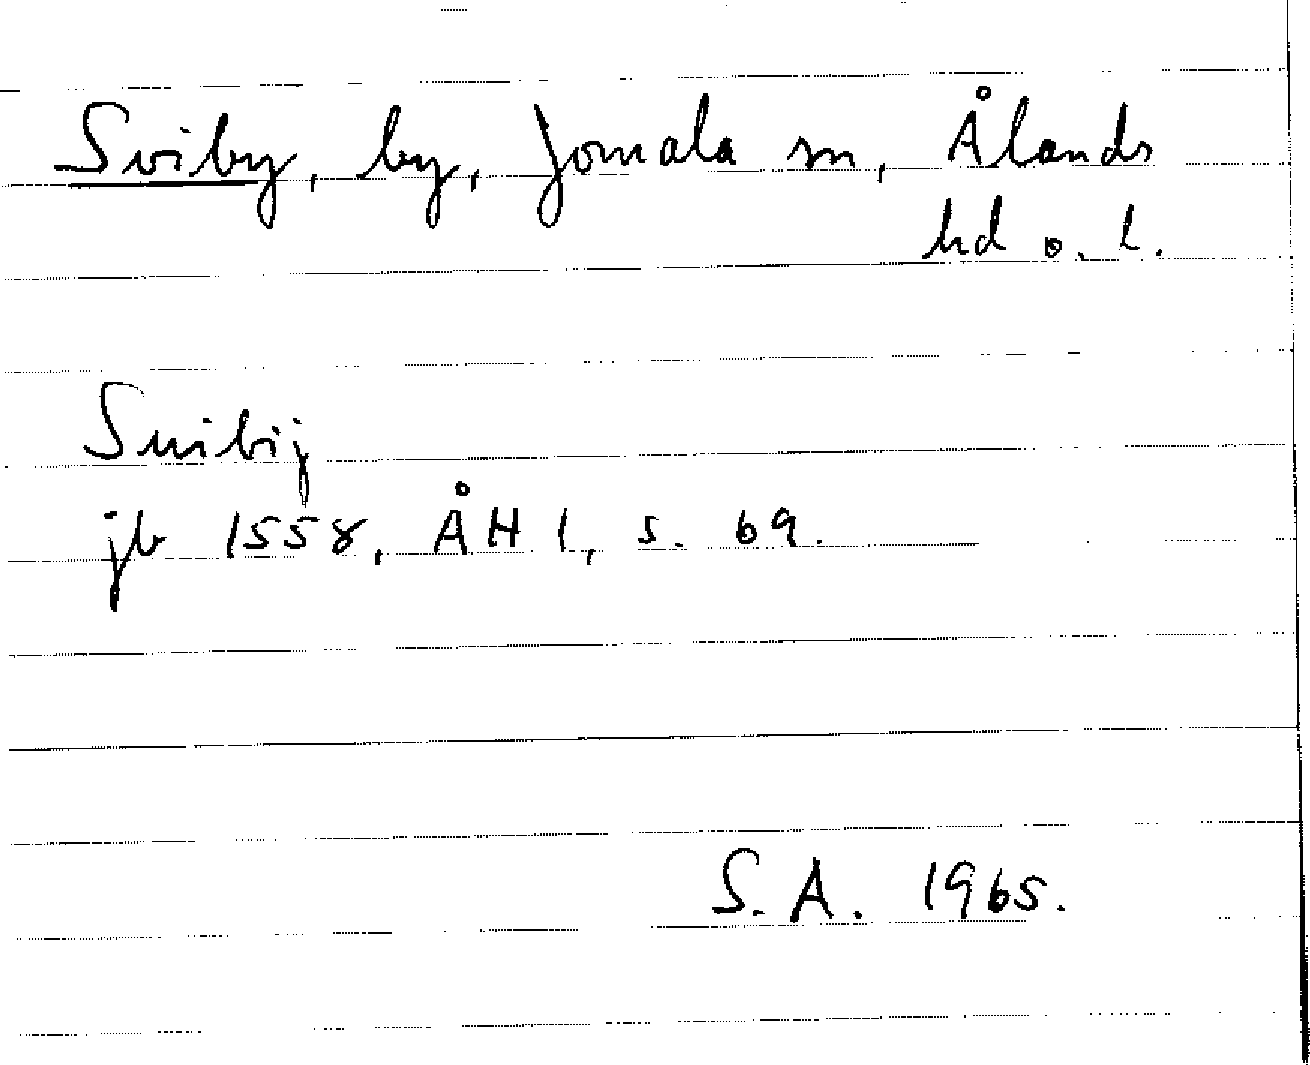 Sviby, by, Jomala sn, Ålands
hd o. l.
Suibij
jb 1558, ÅH 1, s. 69.
S. A. 1965.